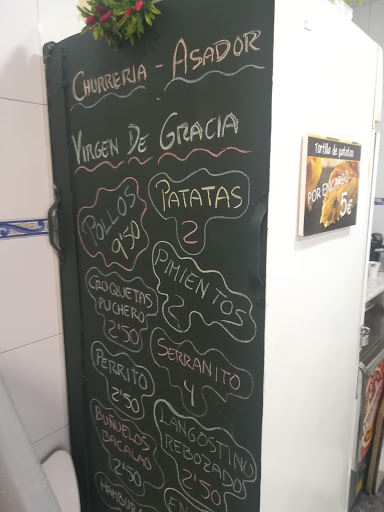 CHURRERIA - ASADOR
VIRGEN DE GRACIA
POLLOS
9'50
PATATAS
2
CROQUETAS
PUCHERO
2'50
PIMIENTOS
2
PERRITO
2'50
SERRANITO
4
BUÑUELOS
BACALAO
2'50
LANGOSTINO
REBOZADO
2'50
Tortilla de patatas
POR ENCARGO
5€